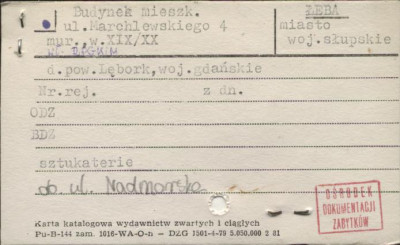 Budynek mieszk.
ul. Marchlewskiego 4
mur., w.XIX/XX
ŁEBA
miasto
woj. słupskie
d.pow. Lębork, woj. gdańskie
Nr. rej. z dn.
ODZ
BDZ
sztukaterie
ob. ul. Nadmorska
OŚRODEK
DOKUMENTACJI
ZABYTKÓW
Karta katalogowa wydawnictw zwartych i ciągłych
Pu-B-144 zam. 1016-WA-O-n — DZG 1501-4-79 5.050.000 2 81